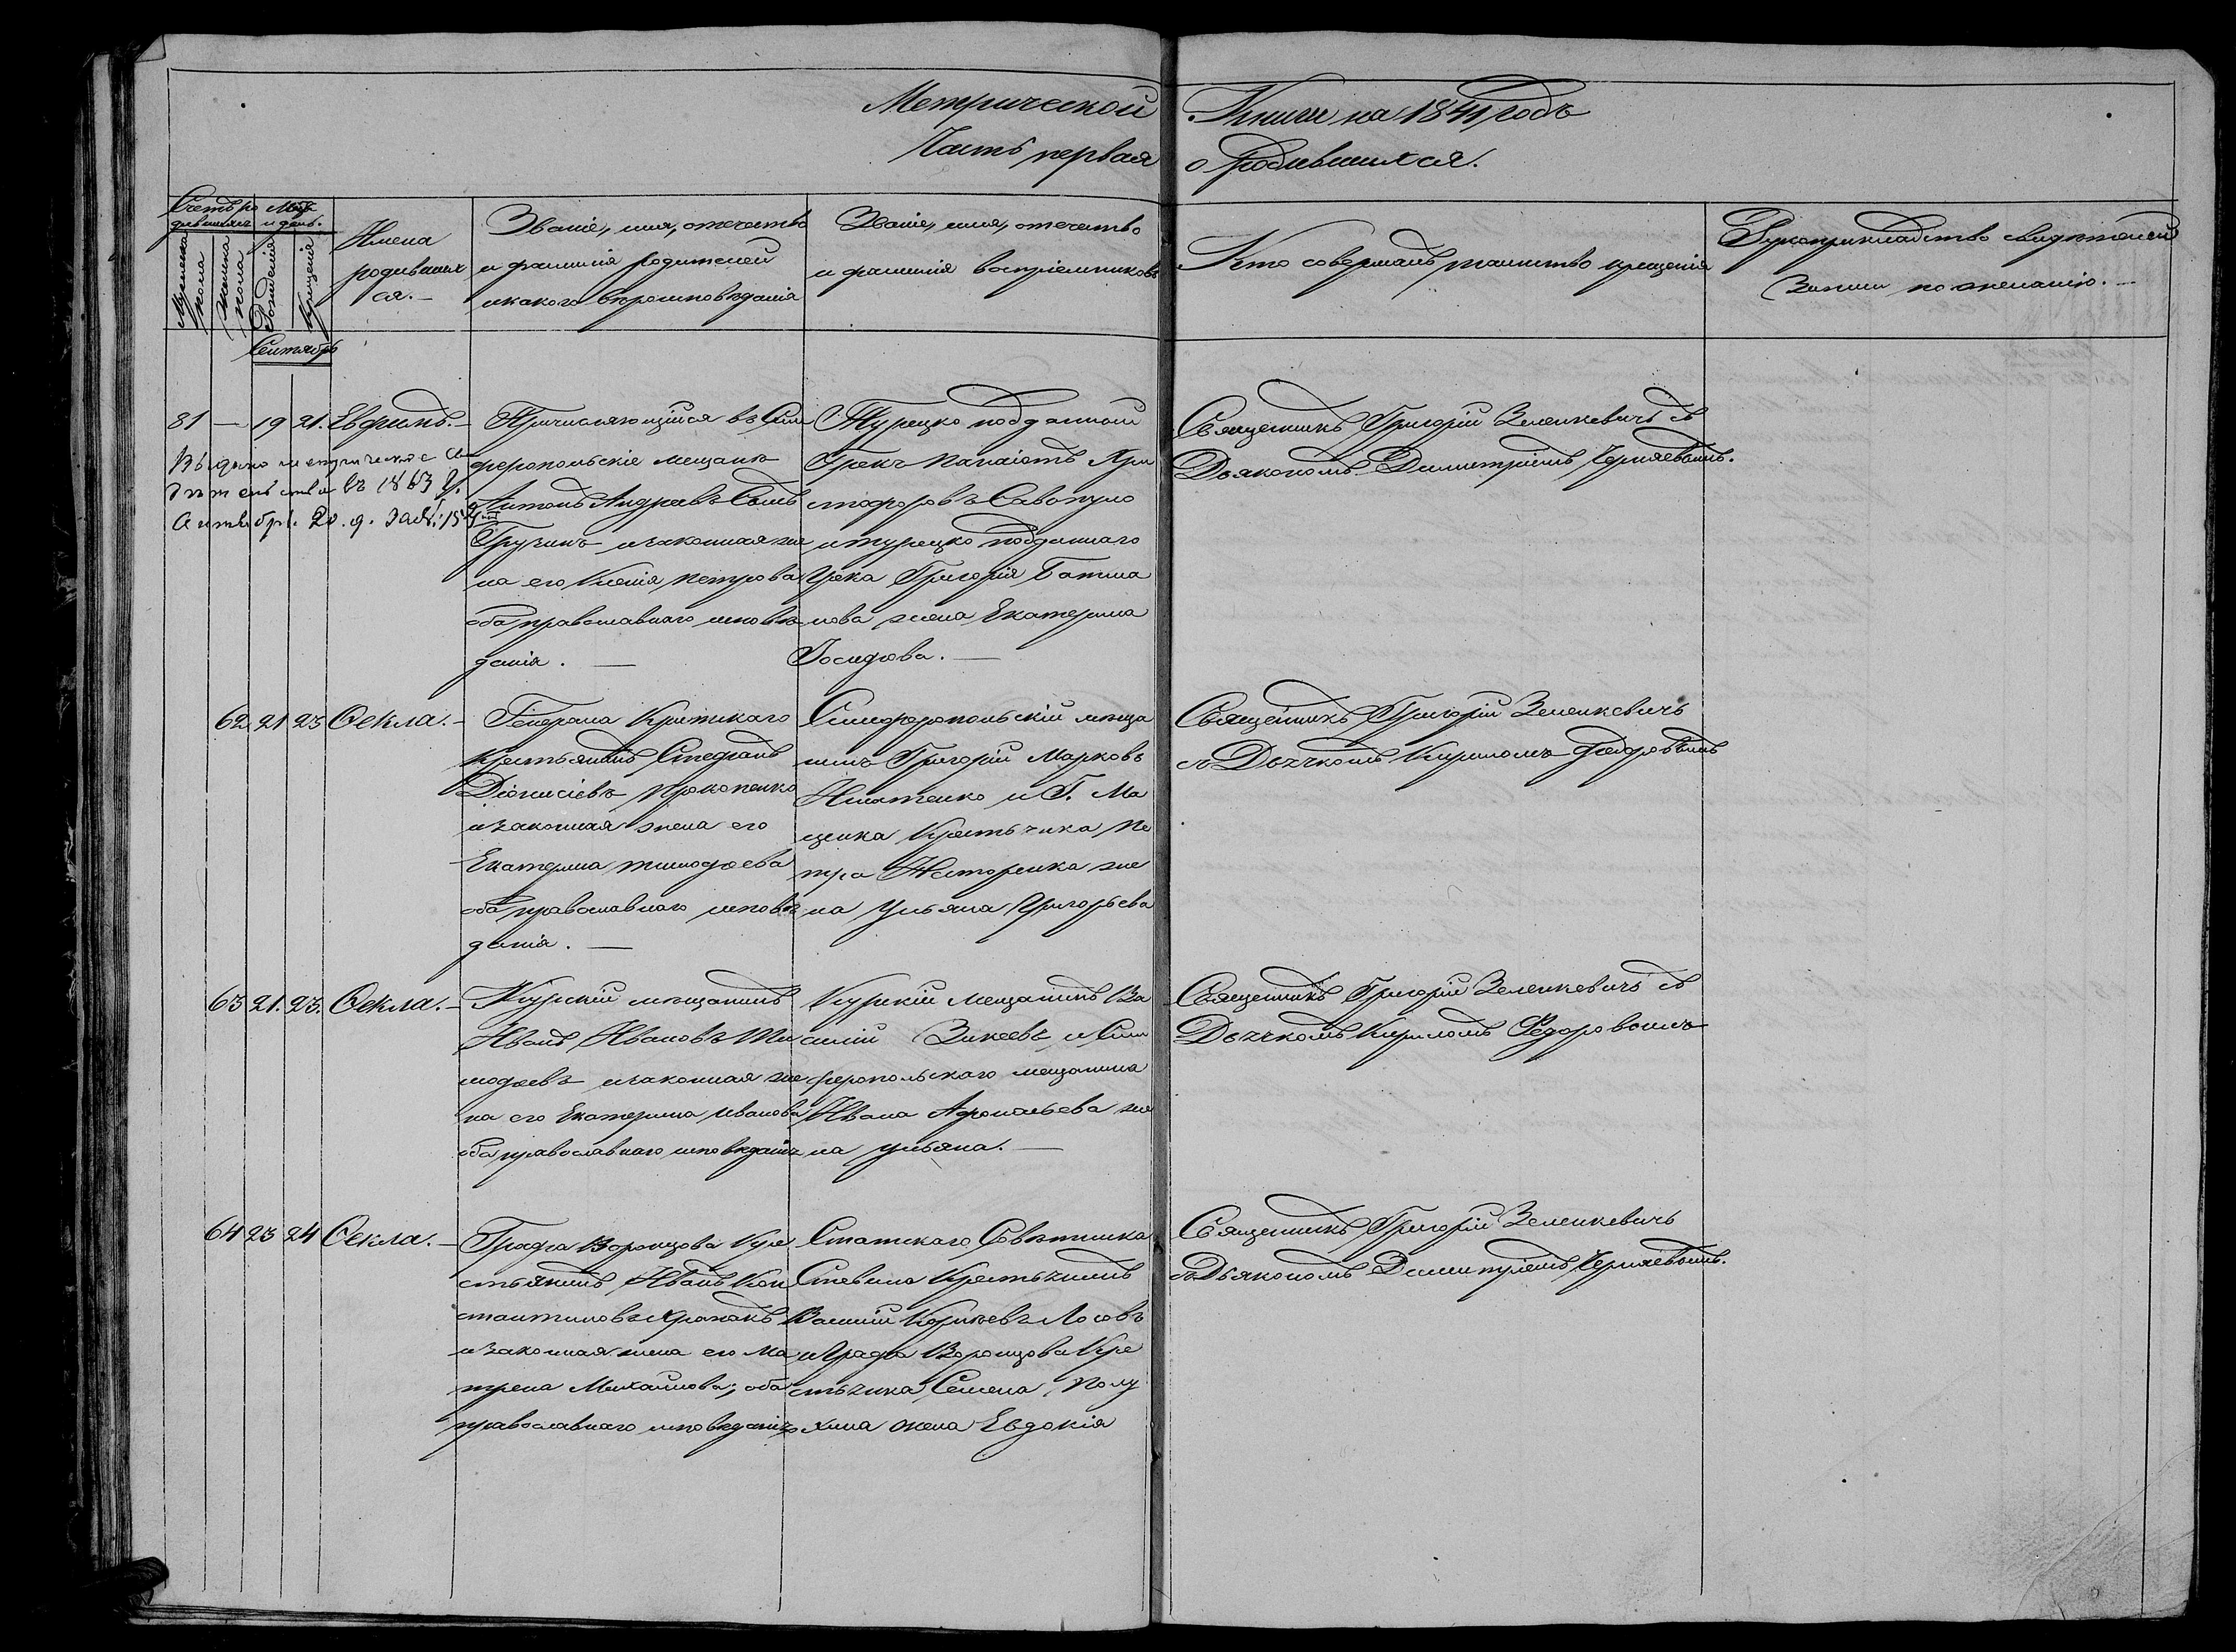 Метрической Книги на 1841 годъ
Часть первая о родившихся.
Счетъ ро
дившихся
Мѣс.
и день.
Мужеска
пола
Женска
пола
Рожденія
Крещенія
Имена
родивших
ся. —
Званіе, имя, отечество
и фамилія родителей
и какого вѣроисповѣданія
Званіе, имя, отечество
и фамилія воспріемниковъ
Кто совершалъ таинство крещенія
Рукоприкладство свидѣтелей
записи по желанію. —
Сентябрь
81 — 19 21. Евфимъ. —
Выдано метрическое сви
дѣтельство въ 1863 г.
Октября 20. д. за №
Причисляющійся въ Сим
феропольскіе мещане
Антонъ Андреевъ Сынъ
Гручинъ и законная же
на его Ксенія Петрова
оба православнаго исповѣ
данія. —
Турецко подданной
Грекъ Панаіотъ Хри
стофоровъ Савопуло
и турецко подданнаго
Грека Григорія
нова жена Екатерина
Священникъ Григорій Зеленкевичъ съ
Дьякономъ Димитріемъ Чернявскимъ.
62. 21 23 Ѳекла. —
Генерала Критскаго
Крестьянинъ Стефанъ
Діонисіевъ Прокопенко
и законная жена его
Екатерина Тимофеева
оба православнаго исповѣ
данія. —
Симферопольскій меща
нинъ Григорій Марковъ
Игнатенко и Г. Ма
ценка Крестьянина Пе
тра Несторенка же
на Ульяна Григорьева
Священникъ Григорій Зеленкевичъ
съ Дьячкомъ Кириломъ Федоровымъ
63 21. 23. Ѳекла. —
Курскій мещанинъ
Иванъ Ивановъ Ти
мофеевъ и законная же
на его Екатерина Иванова
оба православнаго исповѣданія
Курскій Мещанинъ Ва
силій Зикеевъ и Сим
феропольскаго мещанина
Ивана Афонасьева же
на Ульяна. —
Священникъ Григорій Зеленкевичъ съ
Дьячкомъ Кириломъ Федоровымъ
64 23 24 Ѳекла. —
Графа Воронцова Кре
стьянинъ Иванъ Кон
стантиновъ
и законная жена его Ма
трена Михайлова; оба
православнаго исповѣданія
Статскаго Совѣтника
Стевена Крестьянинъ
Василій Корнеевъ Лосовъ
и Графа Воронцова Кре
стьянина Семена Полу
хина жена Евдокія
Священникъ Григорій Зеленкевичъ
съ Дьякономъ Димитріемъ Чернявскимъ.